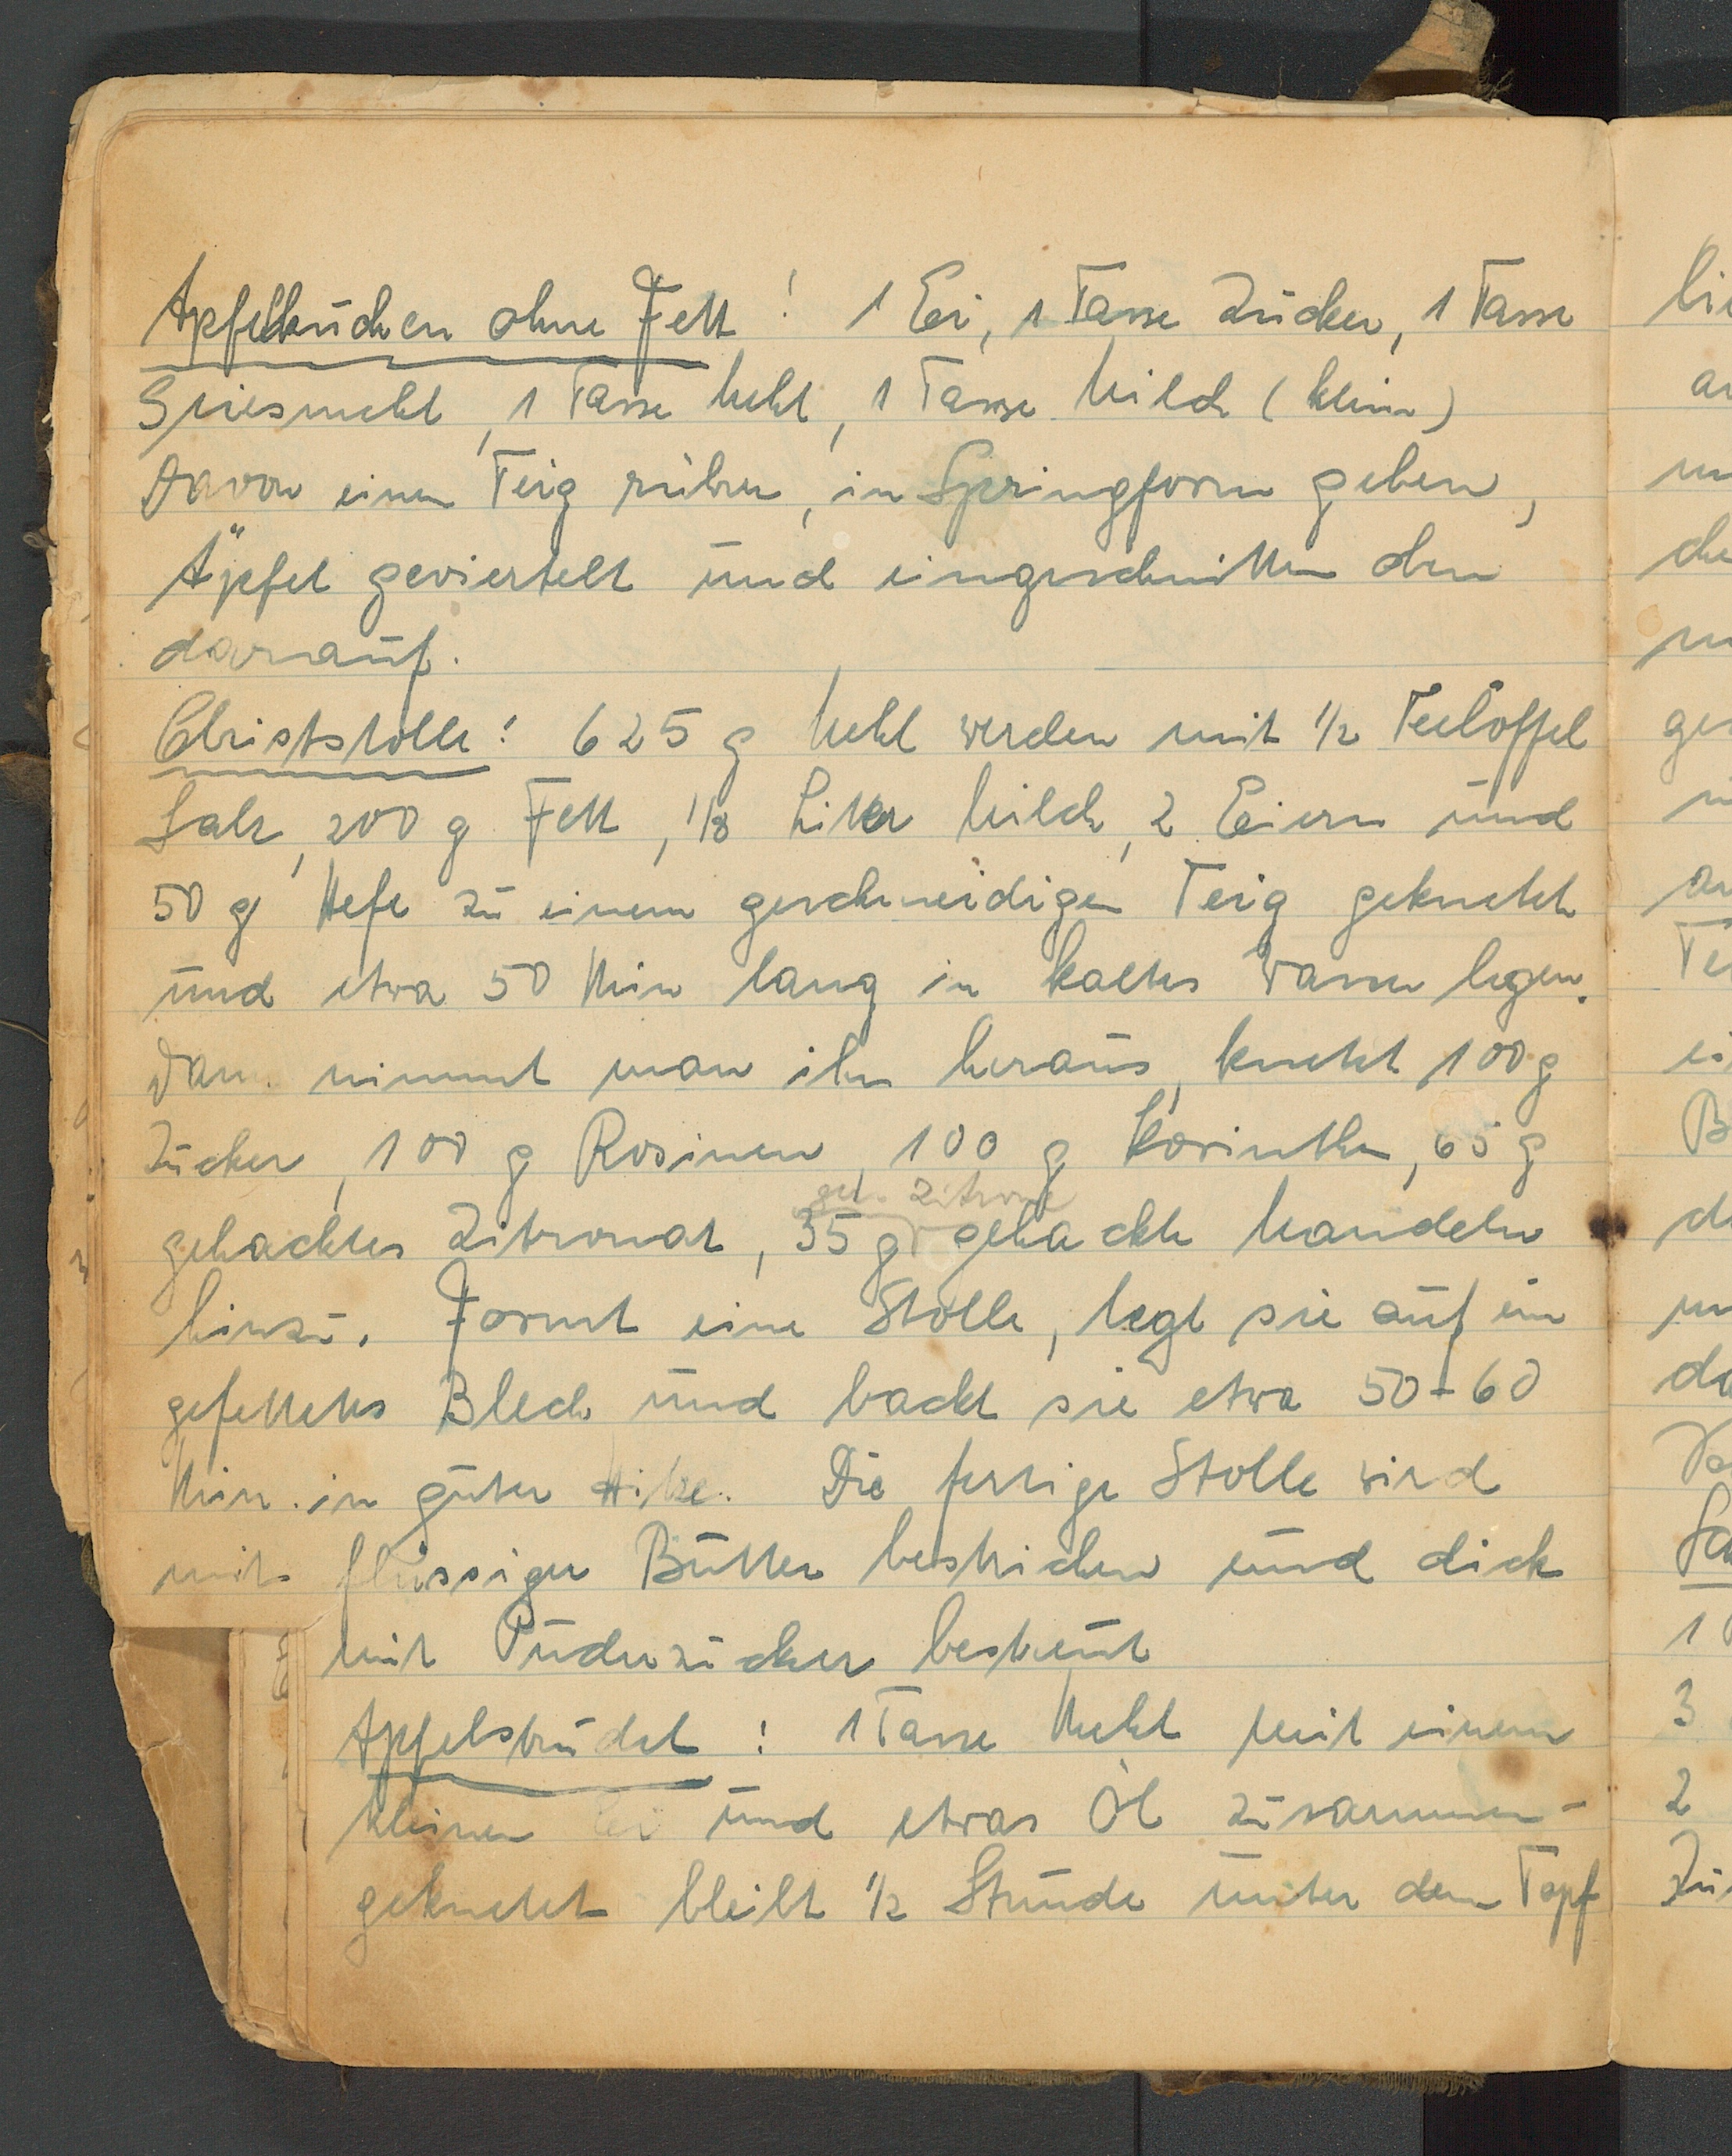 Apfelkuchen ohne Fett! 1 Ei, 1 Tasse Zucker, 1 Tasse
Griesmehl, 1 Tasse Mehl, 1 Tasse Milch (klein)
Davon einen Teig rühren, in Springform geben,
Äpfel geviertelt und eingeschnitten oben
darauf.
Christstolle: 625 g Mehl werden mit 1/2 Teelöffel
Salz, 200 g Fett, 1/8 Liter Milch, 2 Eiern und
50 g Hefe zu einem geschmeidigen Teig geknetet
und etwa 50 Min lang in kaltes Wasser legen.
Dann nimmt man ihn heraus, knetet 100 g
Zucker, 100 g Rosinen, 100 g Korinthen, 65 g
ger. Zitrone
gehacktes Zitronat, 35 g gehackte Mandeln
hinzu. Formt eine Stolle, legt sie auf ein
gefettetes Blech und backt sie etwa 50-60
Min. in guter Hitze. Die fertige Stolle wird
mit flüssiger Butter bestrichen und dick
mit Puderzucker bestreut
Apfelstrudel: 1 Tasse Mehl mit einem
kleinen Ei und etwas Öl zusammen-
geknetet bleibt 1/2 Stunde unter dem Topf